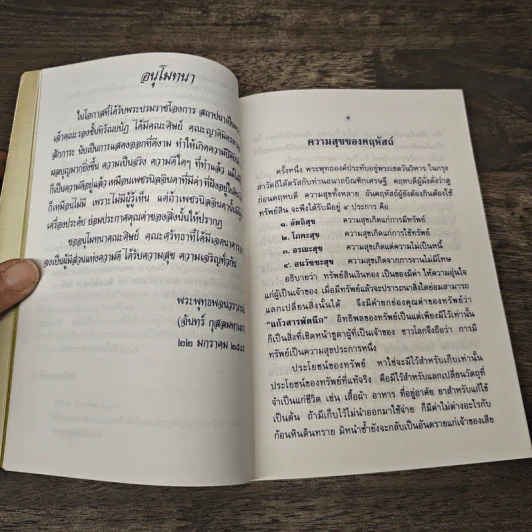 อนุโมทนา
ในโอกาสที่ได้รับพระบรมราชโองการ สถาปนา
เจ้าคณะรองชั้นหิรัณยบัฏ ได้มีคณะศิษย์ คณะญาติมิตร
สักการะ นับเป็นการแสดงออกที่ดีงาม ทำให้เกิดความ
ผลบุญมากยิ่งขึ้น ความเป็นจริง ความดีใดๆ ที่ทำแล้ว
ก็เป็นความดีอยู่แล้ว เหมือนเพชรนิลจินดาที่มีค่าที่ฝังอยู่
ก็เหมือนไม่มี เพราะไม่มีผู้รู้เห็น แต่ถ้าเพชรนิลจินดานั้น
เครื่องประดับ ย่อมประกาศคุณค่าของสิ่งนั้นให้ปรากฏ
ขออนุโมทนาคณะศิษย์ คณะศรัทธาที่ได้มี
องเป็นผู้มีส่วนแห่งความดี ได้รับความสุข ความเจริญทั่วกัน
พระพุทธพจนวราภรณ์
(จันทร์ กุสลมหาเถร)
๒๒ มกราคม
ความสุขของคฤหัสถ์
ครั้งหนึ่ง พระพุทธองค์ประทับอยู่พระเชตวันวิหาร ในกรุง
สาวัตถีได้ตรัสกับท่านอนาถบิณฑิกเศรษฐี คฤหบดีผู้มั่งคั่งว่าดู
ก่อนคฤหบดี ความสุขทั้งหลาย อันคฤหัสถ์ผู้ยังต้องกินต้องใช้
ทรัพย์สิน จะพึงได้รับมีอยู่ ๔ ประการ คือ
๑. อัตถิสุข ความสุขเกิดแก่การมีทรัพย์
๒. โภคะสุข ความสุขเกิดแก่การใช้ทรัพย์
๓. อรณะสุข ความสุขเกิดแต่ความไม่เป็นหนี้
๔. อนวัชชะสุข ความสุขเกิดจากการงานไม่มีโทษ
อธิบายว่า ทรัพย์สินเงินทอง เป็นของมีค่า ให้ความอุ่นใจ
แก่ผู้เป็นเจ้าของ เมื่อมีทรัพย์แล้วจะปรารถนาสิ่งใดย่อมสามารถ
แลกเปลี่ยนสิ่งนั้นได้ จึงมีคำยกย่องคุณค่าของทรัพย์ว่า
"แก้วสารพัดนึก" อิทธิพลของทรัพย์เป็นแต่เพียงมีไว้เท่านั้น
ก็เป็นสิ่งที่เชิดหน้าชูตาผู้ที่เป็นเจ้าของ ชาวโลกจึงถือว่า การมี
ทรัพย์เป็นความสุขประการหนึ่ง
ประโยชน์ของทรัพย์ หาใช่จะมีไว้สำหรับเก็บเท่านั้น
ประโยชน์ของทรัพย์ที่แท้จริง คือมีไว้สำหรับแลกเปลี่ยนวัตถุที่
จำเป็นแก่ชีวิต เช่น เสื้อผ้า อาหาร ที่อยู่อาศัย ยาสำหรับแก้ไข้
เป็นต้น ถ้ามีเก็บไว้ไม่นำออกมาใช้จ่าย ก็มีค่าไม่ต่างอะไรกับ
ก้อนหินดินทราย มิหนำซ้ำยังจะกลับเป็นอันตรายแก่เจ้าของเสีย